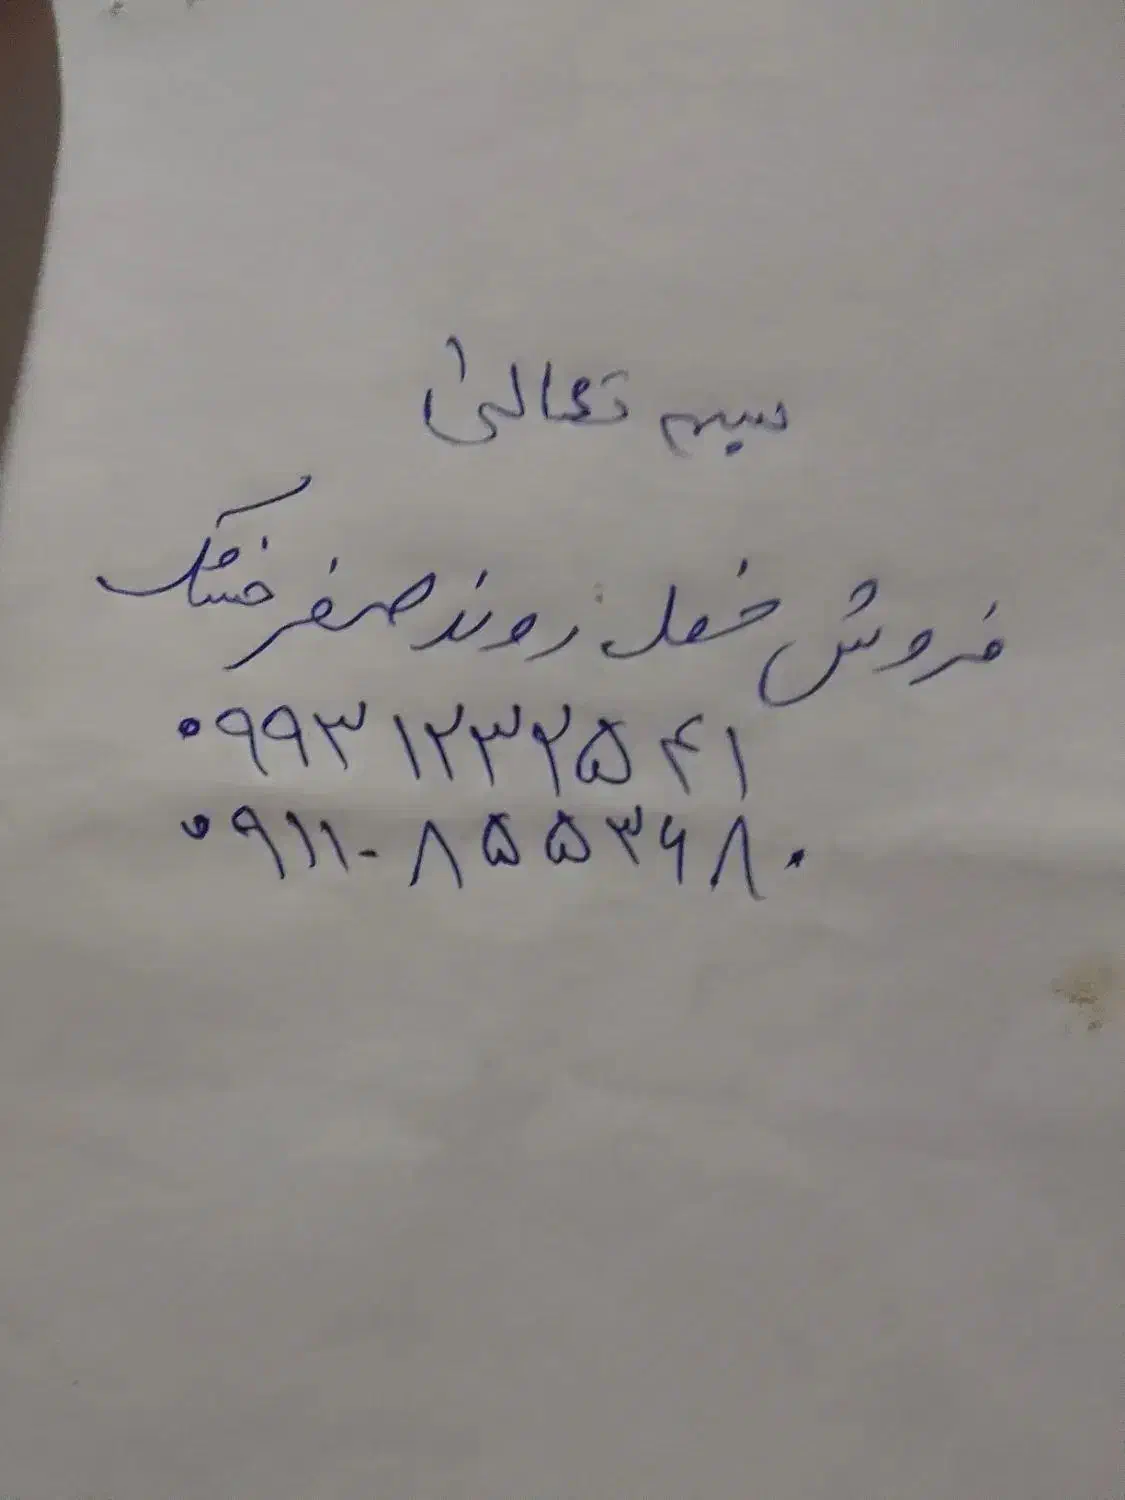 بسمه تعالی
فروش خط روند صفر خشک
۰۹۹۳۱۲۳۲۵۴۱
۰۹۱۱-۸۵۵۳۶۸۰